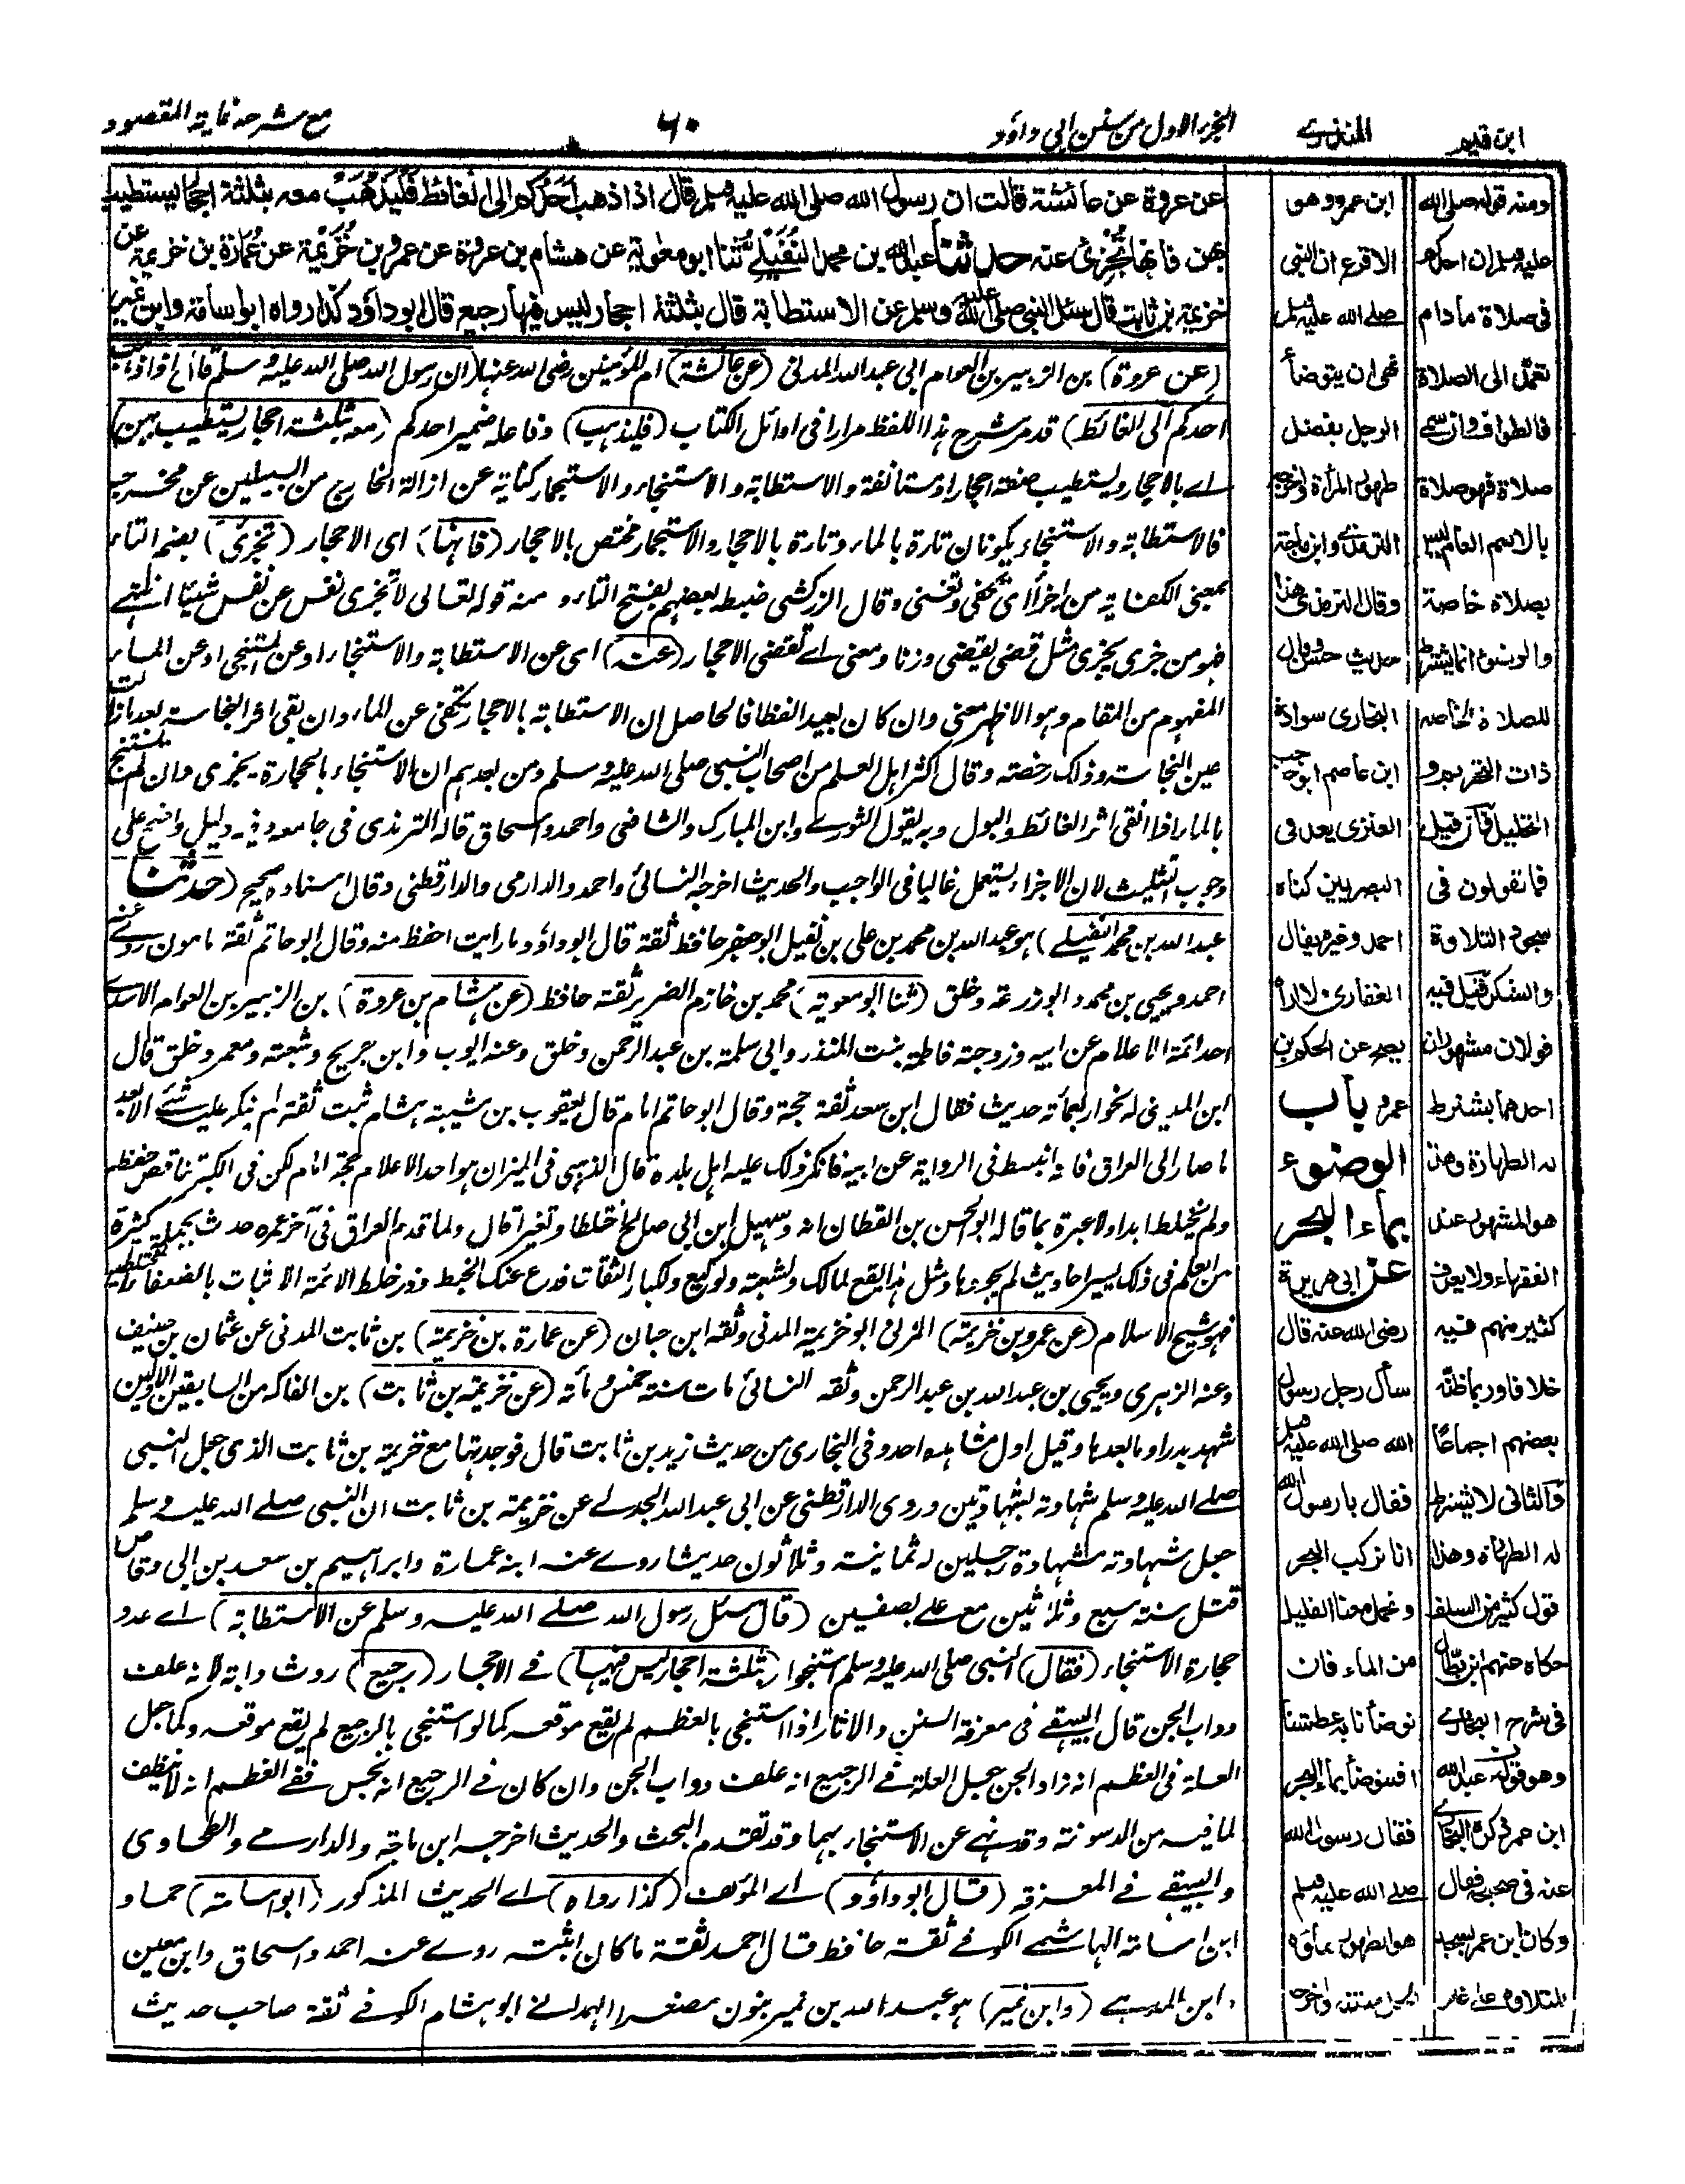 ابن قيم
المنذري
الجزء الاول من سنن ابي داؤد
٦٠
مع شرحه غاية المقصود
عن عروة عن عائشة قالت ان رسول الله صلى الله عليه وسلم قال اذا ذهب احدكم الى الغائط فليذهب معه بثلثة احجار يستطيب
بهن فانها تجزئ عنه حدثنا عبد الله بن محمد النفيلي ثنا ابو معوية عن هشام بن عروة عن عمرو بن خزيمة عن عمارة بن خزيمة عن
خزيمة بن ثابت قال سئل النبي صلى الله عليه وسلم عن الاستطابة قال بثلثة احجار ليس فيها رجيع قال ابو داؤد كذا رواه ابو اسامة وابن نمير
(عن عروة) بن الزبير بن العوام ابي عبد الله المدني (عن عائشة) ام المؤمنين رضي الله عنها (ان رسول الله صلى الله عليه وسلم قال اذا ذهب
احدكم الى الغائط) قد مر شرح هذا اللفظ مرارا في اوائل الكتاب (فليذهب) وفاعله ضمير احدكم (معه بثلثة احجار يستطيب بهن)
اے بالاحجار ويستطيب صفته احجار او مستانفة والاستطابة والاستنجاء والاستجمار كناية عن ازالة الخارج من السبيلين عن مخرجه
فالاستطابة والاستنجاء يكونان تارة بالماء وتارة بالاحجار والاستجمار مختص بالاحجار (فانها) اى الاحجار (تجزئ) بضم التاء
بمعنى الكفاية من اجزأ اى تكفي وتغني وقال الزركشي ضبطه بعضهم بفتح التاء ومنه قوله تعالى لا تجزى نفس عن نفس شيئا انتهى
فهو من جزى يجزى مثل قضى يقضي وزنا ومعنى اے تقضي الاحجار (عنه) اى عن الاستطابة والاستنجاء او عن المستنجي او عن الماء
المفهوم من المقام وهو الاظهر معنى وان كان بعيد الفظا فالحاصل ان الاستطابة بالاحجار تكفي عن الماء وان بقي اثر النجاسة بعد ازالت
عين النجاسة وذلك رخصته وقال اكثر اهل العلم من اصحاب النبي صلى الله عليه وسلم ومن بعدهم ان الاستنجاء بالحجارة يجزى وان لم يستنج
بالماء اذا انقى اثر الغائط والبول وبه يقول الثورے وابن المبارك والشافعي واحمد واسحاق قاله الترمذي في جامعه وفيه دليل واضح على
وجوب التثليث لان الاجزاء يستعمل غالبا في الواجب والحديث اخرجه النسائي واحمد والدارمي والدارقطني وقال اسناده صحيح (حدثنا
عبد الله بن محمد النفيلے) هو عبد الله بن محمد بن علي بن نفيل ابو جعفر حافظ ثقة قال ابو داؤد ما رايت احفظ منه وقال ابو حاتم ثقة مامون روے عنه
احمد ويحيى بن محمد وابو زرعة وخلق (ثنا ابو معوية) محمد بن خازم الضرير ثقته حافظ (عن هشام بن عروة) بن الزبير بن العوام الاسدے
احد ائمة الاعلام عن ابيه وزوجته فاطمة بنت المنذر وابي سلمة بن عبد الرحمن وخلق وعنه ايوب وابن جريج وشعبة ومعمر وخلق قال
ابن المديني له نحو اربعمأته حديث فقال ابن سعد ثقة حجة وقال ابو حاتم امام قال يعقوب بن شيبة هشام ثبت ثقة لم ينكر عليه شئے الا بعد
ما صار الى العراق فانه انبسط في الرواية عن ابيه فانكر ذلك عليه اهل بلده قال الذهبي في الميزان هو احد الاعلام حجة امام لكن في الكبر تناقص حفظه
ولم يختلط ابدا ولا عبرة بما قاله ابو الحسن بن القطان انه وسهيل ابن ابي صالح اختلطا وتغيرا قال ولما قدم العراق في آخر عمره حدث بجملة كثيرة
من العلم في ذلك يسير احاديث لم يجودها ومثل هذا يقع لمالك ولشعبة ولوكيع ولكبار الثقات فدع عنك الخبط وذر خلط الائمة الاثبات بالضعفاء والمختلطين
فهو شيخ الاسلام (عن عمرو بن خزيمة) المزني ابو خزيمة المدني وثقه ابن حبان (عن عمارة بن خزيمة) بن ثابت المدني عن عثمان بن حنيف
وعنه الزهري ويحيى بن عبد الله بن عبد الرحمن وثقه النسائي مات سنة خمس ومأته (عن خزيمة بن ثابت) بن الفاكه من السابقين الاولين
شهد بدرا وما بعدها وقيل اول مشاهده احد وفي البخاري من حديث زيد بن ثابت قال فوجدتها مع خزيمة بن ثابت الذي جعل النبي
صلى الله عليه وسلم شهادته بشهادتين وروى الدارقطني عن ابي عبد الله الجدلے عن خزيمة بن ثابت ان النبي صلے الله عليه وسلم
جعل شهادته شهادة رجلين له ثمانية وثلاثون حديثا روے عنه ابنه عمارة وابراهيم بن سعد بن ابي وقاص
قتل سنة سبع وثلاثين مع علے بصفين (قال سئل رسول الله صلے الله عليه وسلم عن الاستطابة) اے عدد
حجارة الاستنجاء (فقال) النبي صلى الله عليه وسلم استنجوا (بثلثة احجار ليس فيها) فے الاحجار (رجيع) روث دابة لانه علف
دواب الجن قال البيهقے في معرفة السنن والاثار اذا استنجى بالعظم لم يقع موقعه كما لو استنجى بالرجيع لم يقع موقعه وكما جعل
العلة في العظم انه زاد الجن جعل العلة فے الرجيع انه علف دواب الجن وان كان فے الرجيع انه نجس ففے العظم انه لا ينظف
لما فيه من الدسومة وقد نهے عن الاستنجاء بهما وقد تقدم البحث والحديث اخرجه ابن ماجة والدارمے والطحاوي
والبيهقے فے المعرفة (قال ابو داؤد) اے المؤلف (كذا رواه) اے الحديث المذكور (ابو اسامة) حماد
ابن اسامة الهاشمے الكوفے ثقة حافظ قال احمد ثقة ما كان اثبته روے عنه احمد واسحاق وابن معين
وابن المدينے (وابن نمير) هو عبد الله بن نمير بنون مصغرا الهمدانے ابو هشام الكوفے ثقة صاحب حديث
ابن عمرو وهو
الاقرع ان النبي
صلى الله عليه وسلم
نهى ان يتوضأ
الرجل بفضل
طهور المرأة واخرجه
الترمذي وابن ماجة
وقال الترمذي هذا
حديث حسن وقال
البخاري سوادة
ابن عاصم ابو حاجب
العنزي يعد في
البصريين كناه
احمد وغيره يقال
الغفاري ولا اراه
يصح عن الحكم بن
عمرو باب
الوضوء
بماء البحر
عن ابي هريرة
رضى الله عنه قال
سأل رجل رسول
الله صلى الله عليه وسلم
فقال يا رسول الله
انا نركب البحر
ونحمل معنا القليل
من الماء فان
توضأنا به عطشنا
افنتوضأ بماء البحر
فقال رسول الله
صلے الله عليه وسلم
هو الطهور ماؤه
الحل ميتته واخرجه
ومنه قوله صلى الله
عليه وسلم ان احدكم
في صلاة ما دام
تعمد الى الصلاة
فالطواف وان سمي
صلاة فهو صلاة
بالاسم العام ليس
بصلاة خاصة
والوضوء انما يشترط
للصلاة الخاصة
ذات التحريم و
التحليل فان قيل
فما تقولون في
سجود التلاوة
والشكر قيل فيه
قولان مشهوران
احدهما يشترط
له الطهارة وهذا
هو المشهور عند
الفقهاء ولا يعرف
كثير منهم فيه
خلافا وربما ظنه
بعضهم اجماعا
والثاني لا يشترط
له الطهارة وهذا
قول كثير من السلف
حكاه عنهم ابن بطال
في شرح البخارے
وهو قول عبد الله
ابن عمر ذكره البخاري
عنه في صحيحه فقال
وكان ابن عمر يسجد
للتلاوة على غير